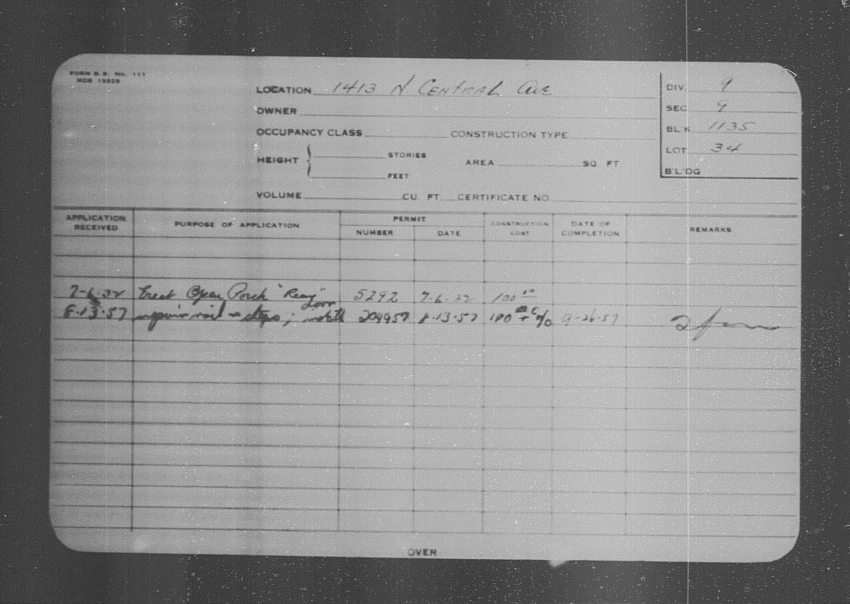 FORM B.B. No. 111
MOB 19829
LOCATION 1413 N CENTRAL AVE
OWNER
OCCUPANCY CLASS CONSTRUCTION TYPE
HEIGHT { STORIES AREA SQ FT
FEET
VOLUME CU. FT. CERTIFICATE NO.
DIV. 9
SEC 9
BL'K 1135
LOT 34
B'L'DG
APPLICATION RECEIVED PURPOSE OF APPLICATION PERMIT NUMBER DATE CONSTRUCTION COST DATE OF COMPLETION REMARKS
7-6-32 Erect Open Porch "Rear" 5292 7-6-32 100
8-13-57 repair rail & steps; 204957 8-13-57 100 9-26-57
OVER